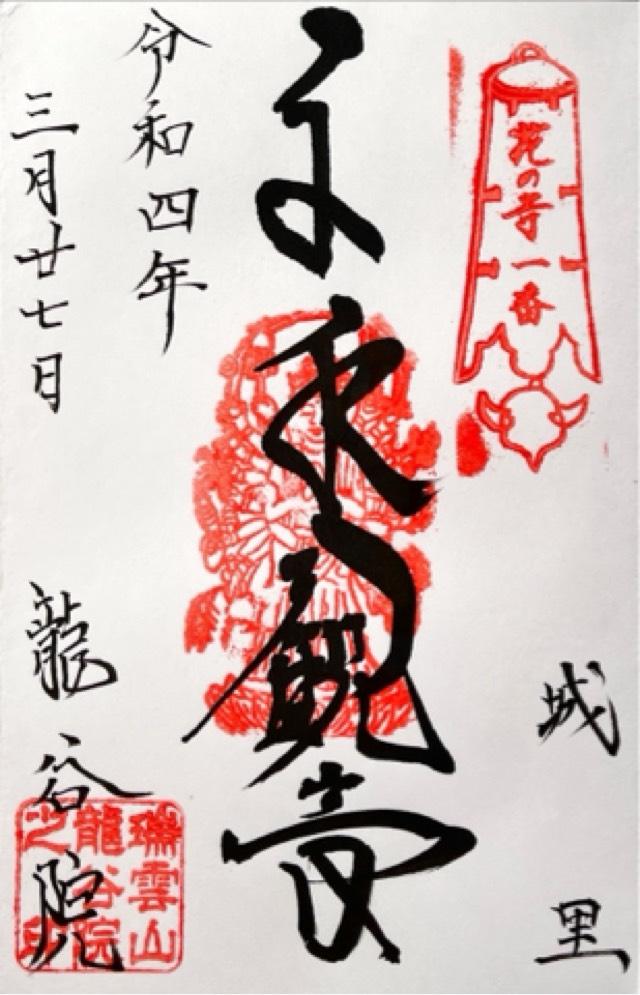 花の寺一番
城里
観音
令和四年
三月廿七日
龍谷院
瑞雲山
龍谷院
之印